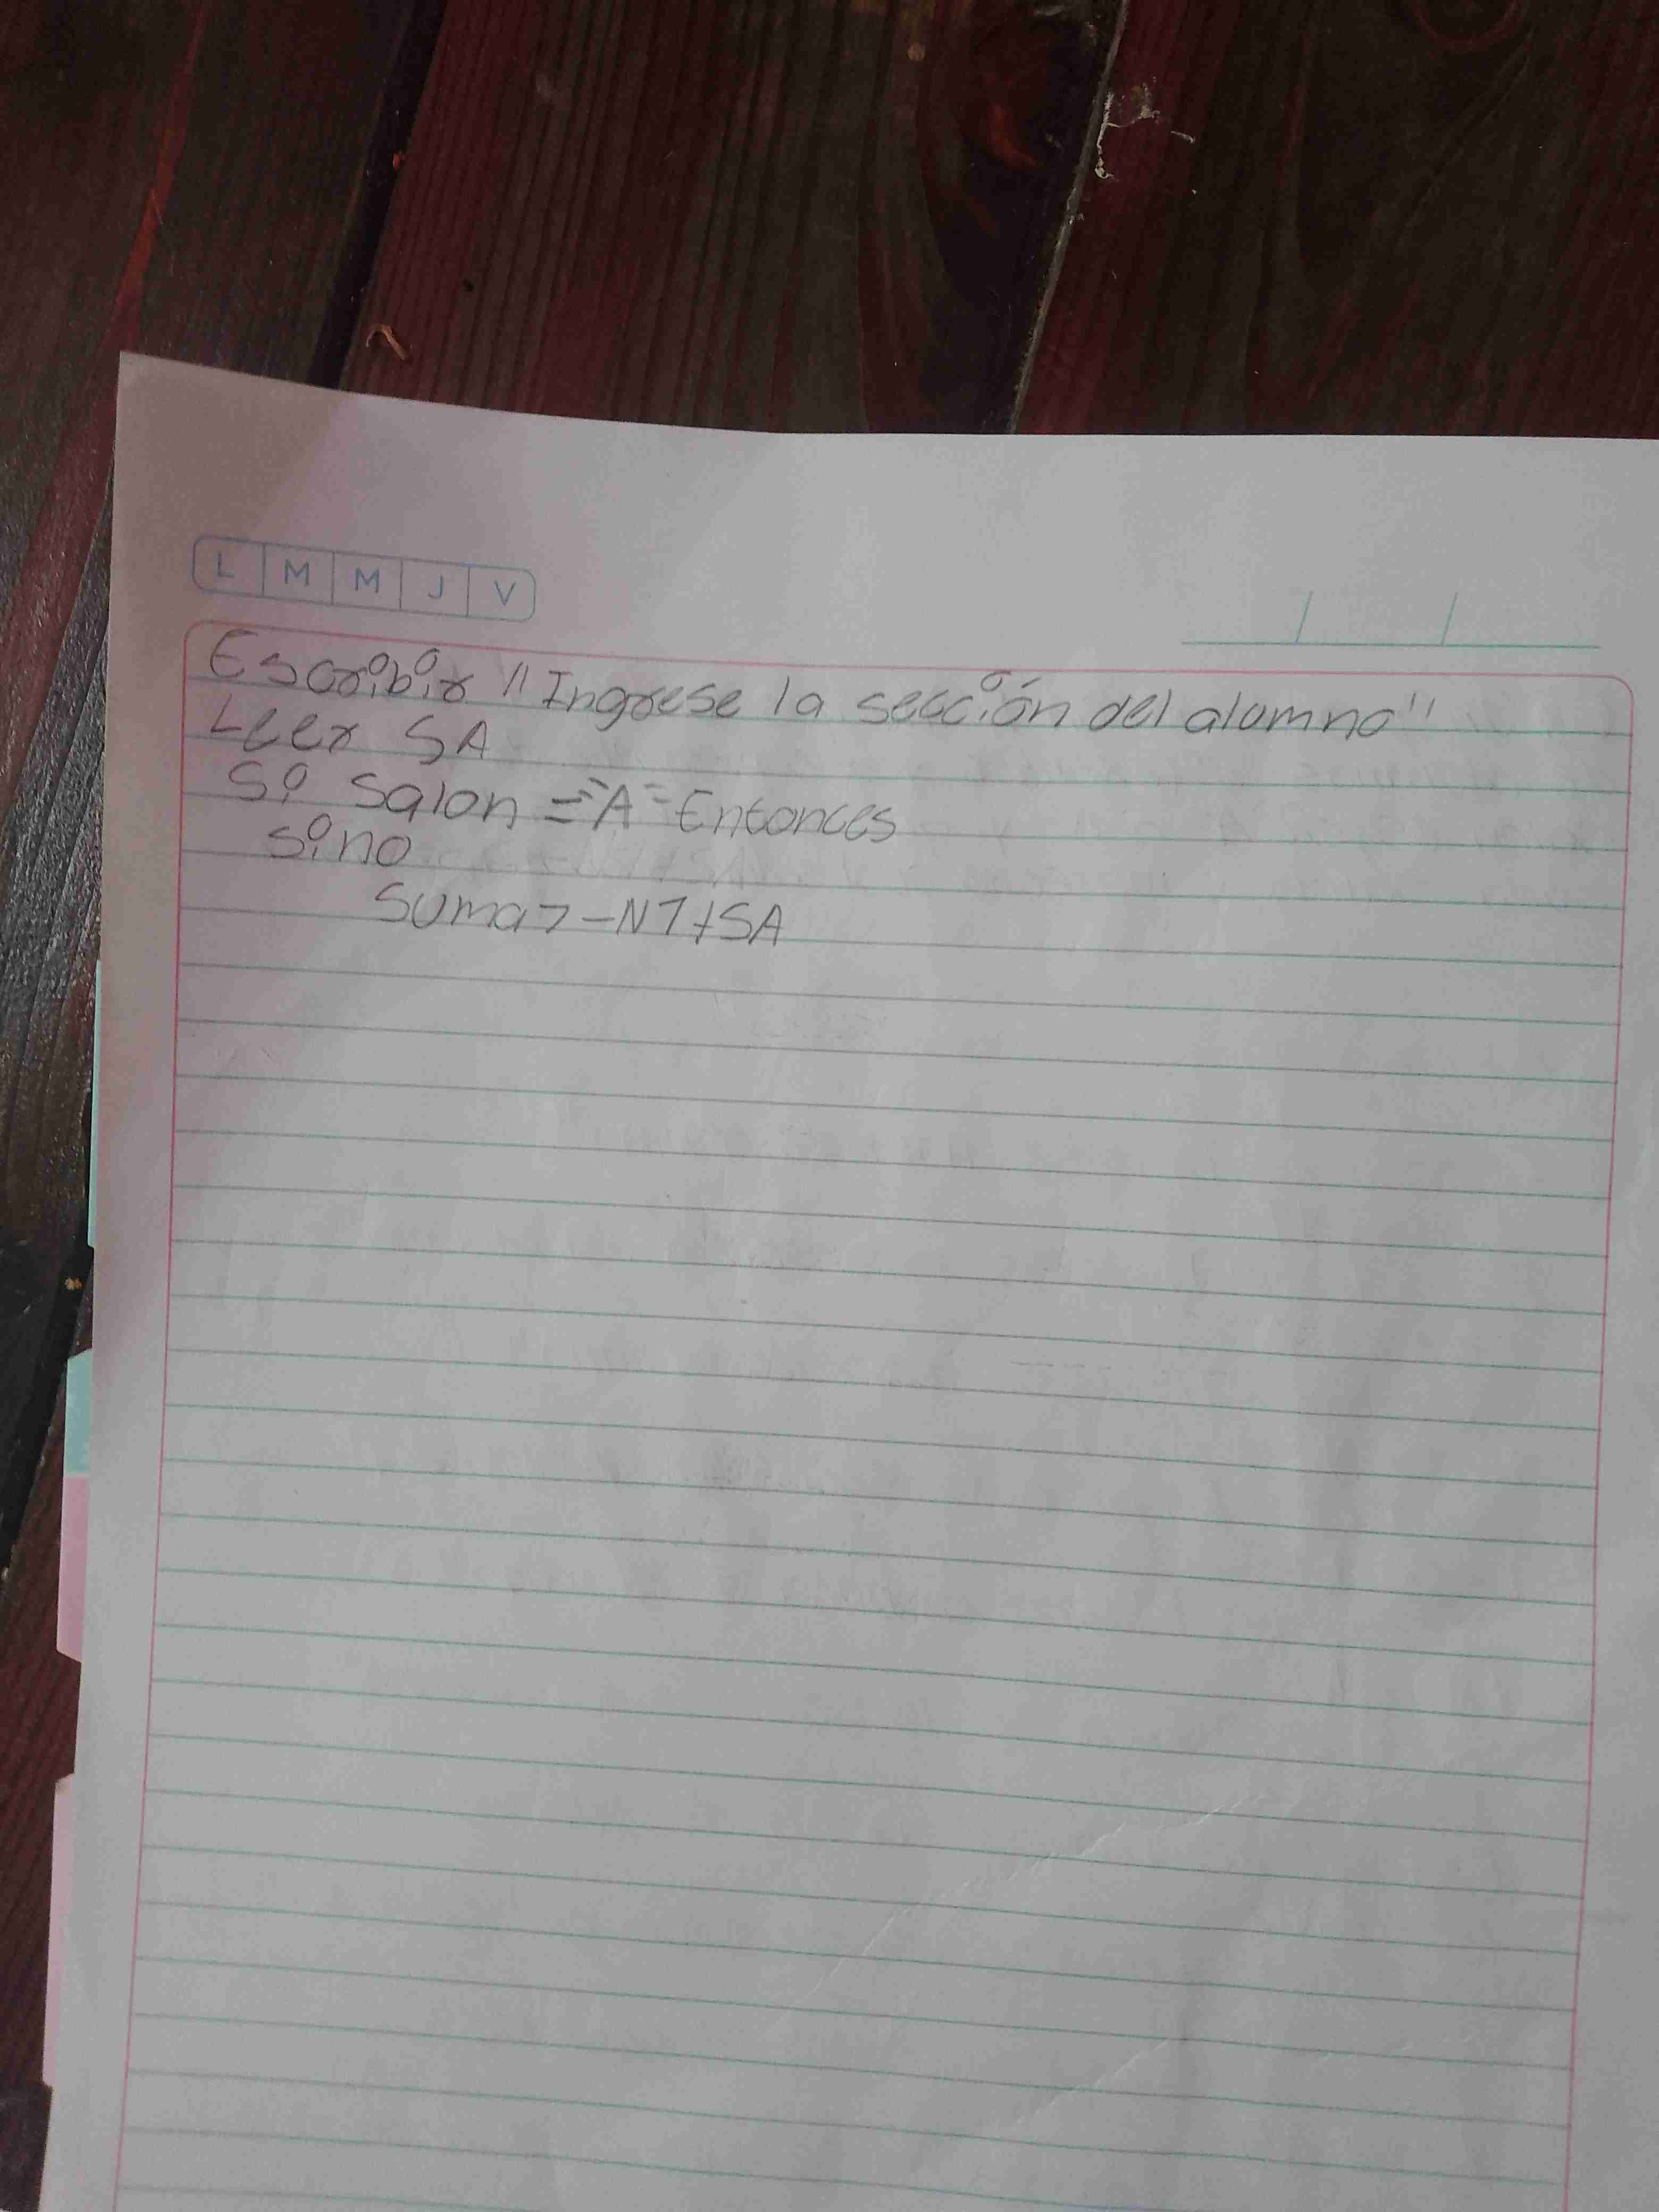 L M M J V
Escribir "Ingrese la sección del alumno"
Leer SA
Si Salon = "A" Entonces
sino
Suma> -N1+SA